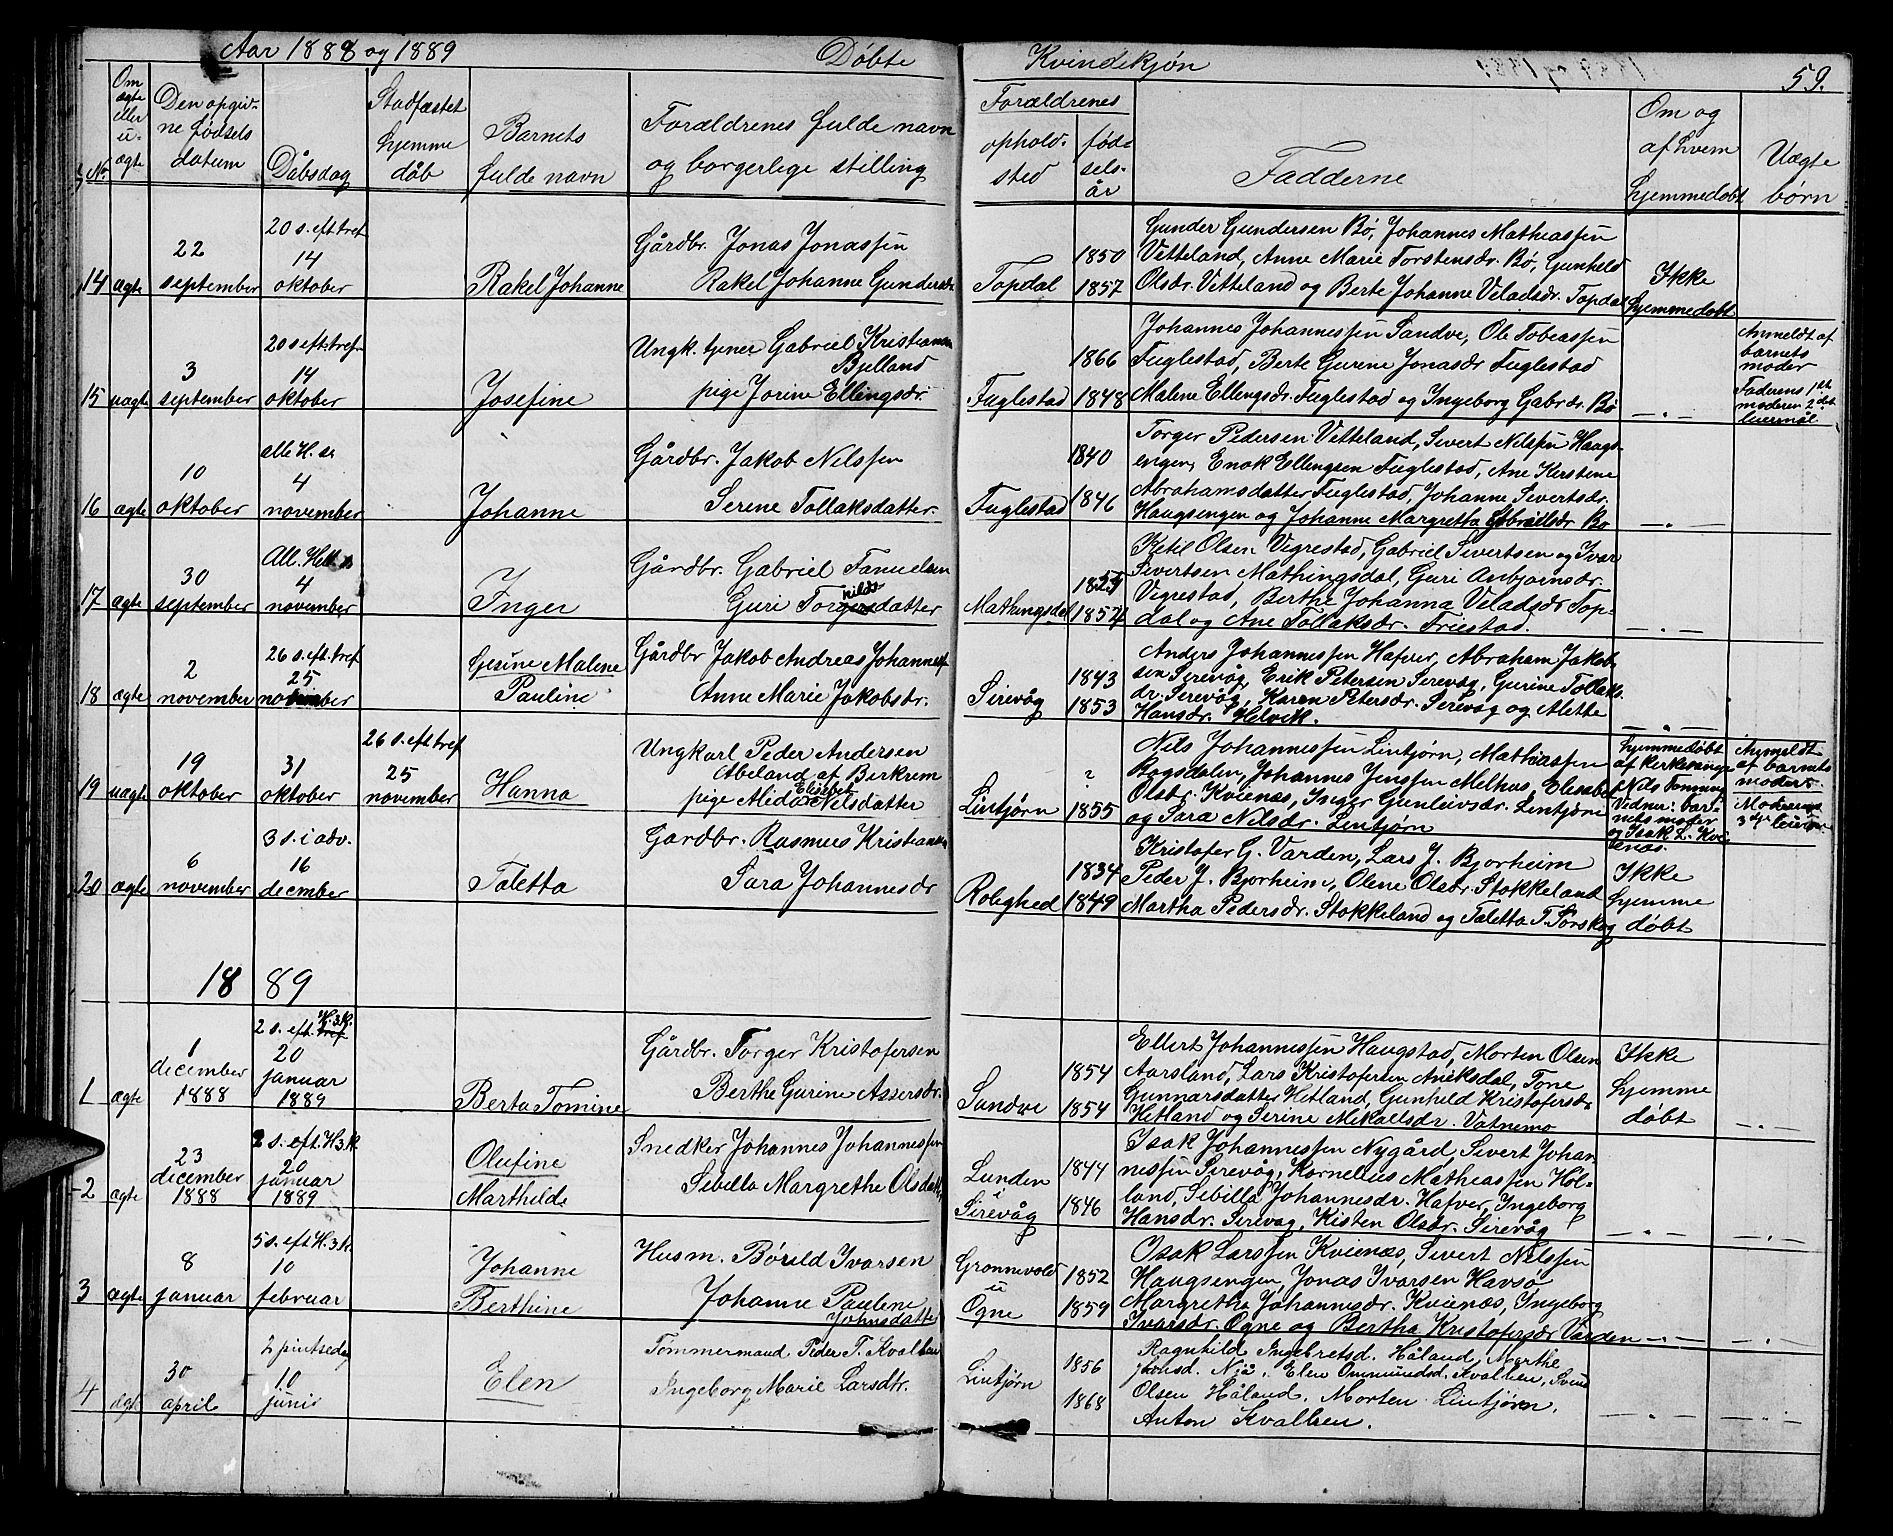 Aar 1888 og 1889
Døbte
Kvindekjøn
59.
No.
Om ægte eller u-ægte
Den opgivne fødsels datum
Dåbsdag
Stadfæstet hjemme dåb
Barnets fulde navn
Forældrenes fulde navn og borgerlige stilling
Forældrenes
opholdsted
fødselsår
Fadderne
Om og af hvem hjemmedøbt
Uægte børn
14 ægte
22 september
20 s. eft. tref
14 oktober
Rakel Johanne
Gårdbr. Jonas Jonassen
Rakel Johanne Gundersdr
Topdal
1850
1857
Gunder Gundersen Bø, Johannes Mathiassen
Vetteland, Anne Marie Torstensdr. Bø, Gunhild
Olsdr. Vetteland og Berte Johanne Veladsdr. Topdal
Ikke hjemmedøbt
15 uægte
3 september
20 s eft. tref.
14 oktober
Josefine
Ungk. tjener Gabriel Kristiansen
Bjelland
pige Jorine Ellingsdr.
Fuglestad
1866
1848
Johannes Johannessen Sandve, Ole Tobiassen
Fuglestad, Berte Gurine Jonasdr Fuglestad
Malene Ellingsdr. Fuglestad og Ingeborg Gabr.dr. Bø
— " —
Anmeldt af
barnets
moder
Faderens 1ste
moderen 2det
leiermål
16 ægte
10 oktober
alle H. s.
4 november
Johanne
Gårdbr. Jakob Nilssen
Serene Tollaksdatter
Fuglestad
1840
1846
Torger Pedersen Vetteland, Sivert Nilssen Haugs-
engen, Enok Ellingsen Fuglestad, Ane Kirstine
Abrahamsdatter Fuglestad, Johanne Sivertsdr.
Haugsengen og Johanne Margretha Gabrielsdr Bø
— " —
17 ægte
30 september
All. Hell. s
4 november
Inger
Gårdbr. Gabriel Tanuelsen
Guri Torgersdatter
nilds
Mathingsdal
1854
Ketil Olsen Vigrestad, Gabriel Sivertsen og Ivar
Sivertsen Mathingsdal, Guri Anbjørnsdr.
Vigrestad, Berthe Johanna Veladsdr Top-
dal og Ane Tollaksdr. Friestad.
— " —
18 ægte
2 november
26 s. eft. tref
25 november
Gesine Malene
Pauline
Gårdbr Jakob Andreas Johannessen
Anne Marie Jakobsdr.
Sirevåg
1843
1853
Anders Johannessen Hafver, Abraham Jakob-
sen Sirevåg, Erik Petersen Sirevåg, Gurine Tollaks-
dr. Sirevåg, Karen Petersdr. Sirevåg og Alette
Hansdr. Helvik.
— " —
19 uægte
19 oktober
31 oktober
26 s. eft tref
25 november
Hanna
Ungkarl Peder Andersen
Abeland af Birkrem
pige Elisabet Nilsdatter
Lintjørn
?
1855
Nils Johannessen Lintjørn, Mathiassen
Bogsdalen, Johannes Jenssen Melhus, Elisabet
Olsdr. Kvienæs, Inger Gunleivsdr. Lintjørn
og Sara Nilsdr. Lintjørn
hjemmedøbt
af kirkesanger
Nils Tonning
Vidner: bar-
nets moder
og Isak L. Kvi-
enæs.
Anmeldt
af barnets
moder.
Moderens
3die leierm.
20 ægte
6 november
3 s. i adv.
16 december
Taletta
Gårdbr. Rasmus Kristiansen
Sara Johannesdr
Rolighed
1834
1849
Kristofer G. Varden, Lars J. Bjorheim
Peder J. Bjorheim, Olene Olsdr. Stokkeland
Martha Pedersdr. Stokkeland og Taletta T. Torskog
Ikke
hjemme
døbt
1889
1 ægte
1 december 1888
2 s. eft. H. 3 k.
20 januar 1889
Berta Tomine
Gårdbr. Torger Kristofersen
Berthe Gurine Assersdr.
Sandve
1854
1854
Ellert Johannessen Haugstad, Morten Olsen
Aarsland, Lars Kristofersen Aniksdal, Tone
Gunnarsdatter Hetland, Gunhild Kristofersdr
Hetland og Serine Mikalsdr. Vatnemo
Ikke
hjemme
døbt
— " —
2 ægte
23 december 1888
2 s. eft. H 3 k
20 januar 1889
Olufine
Marthilde
Snedker Johannes Johannessen
Sibilla Margrethe Olsdatter
Lunden
i
Sirevåg
1844
1846
Isak Johannessen Nygård, Sivert Johan-
nessen Sirevåg, Kornelius Mathiassen Høl-
land, Sibilla Johannesdr. Hafver, Ingeborg
Hansdr. Sirevåg, Kisten Olsdr. Sirevåg
— " —
— " —
3 ægte
8 januar
5 s. eft H. 3 k.
10 februar
Johanne
Berthine
Husm. Børild Ivarsen
Johanne Pauline
Johnsdatter
Grønnevold
i
Ogne
1852
1859
Isak Larssen Kvienæs, Sivert Nilssen
Haugsengen, Jonas Ivarsen Havsø
Margretha Johannesdr. Kvienæs, Ingeborg
Ivarsdr. Ogne og Bertha Kristofersdr Varden
— " —
— " —
4 ægt
30 april
2 pintsedag
10 juni
Elen
Tømmermand Peder T. Kvalben
Ingeborg Marie Larsdtr.
Lintjørn
1856
1868
Ragnhild Ingebretsd. Håland, Marthe
Jonsd. Njå, Elen Ommundsd. Kvalben, Svend
Olsen Håland, Morten Lintjørn,
Anton Kvalben.
— " —
— " —